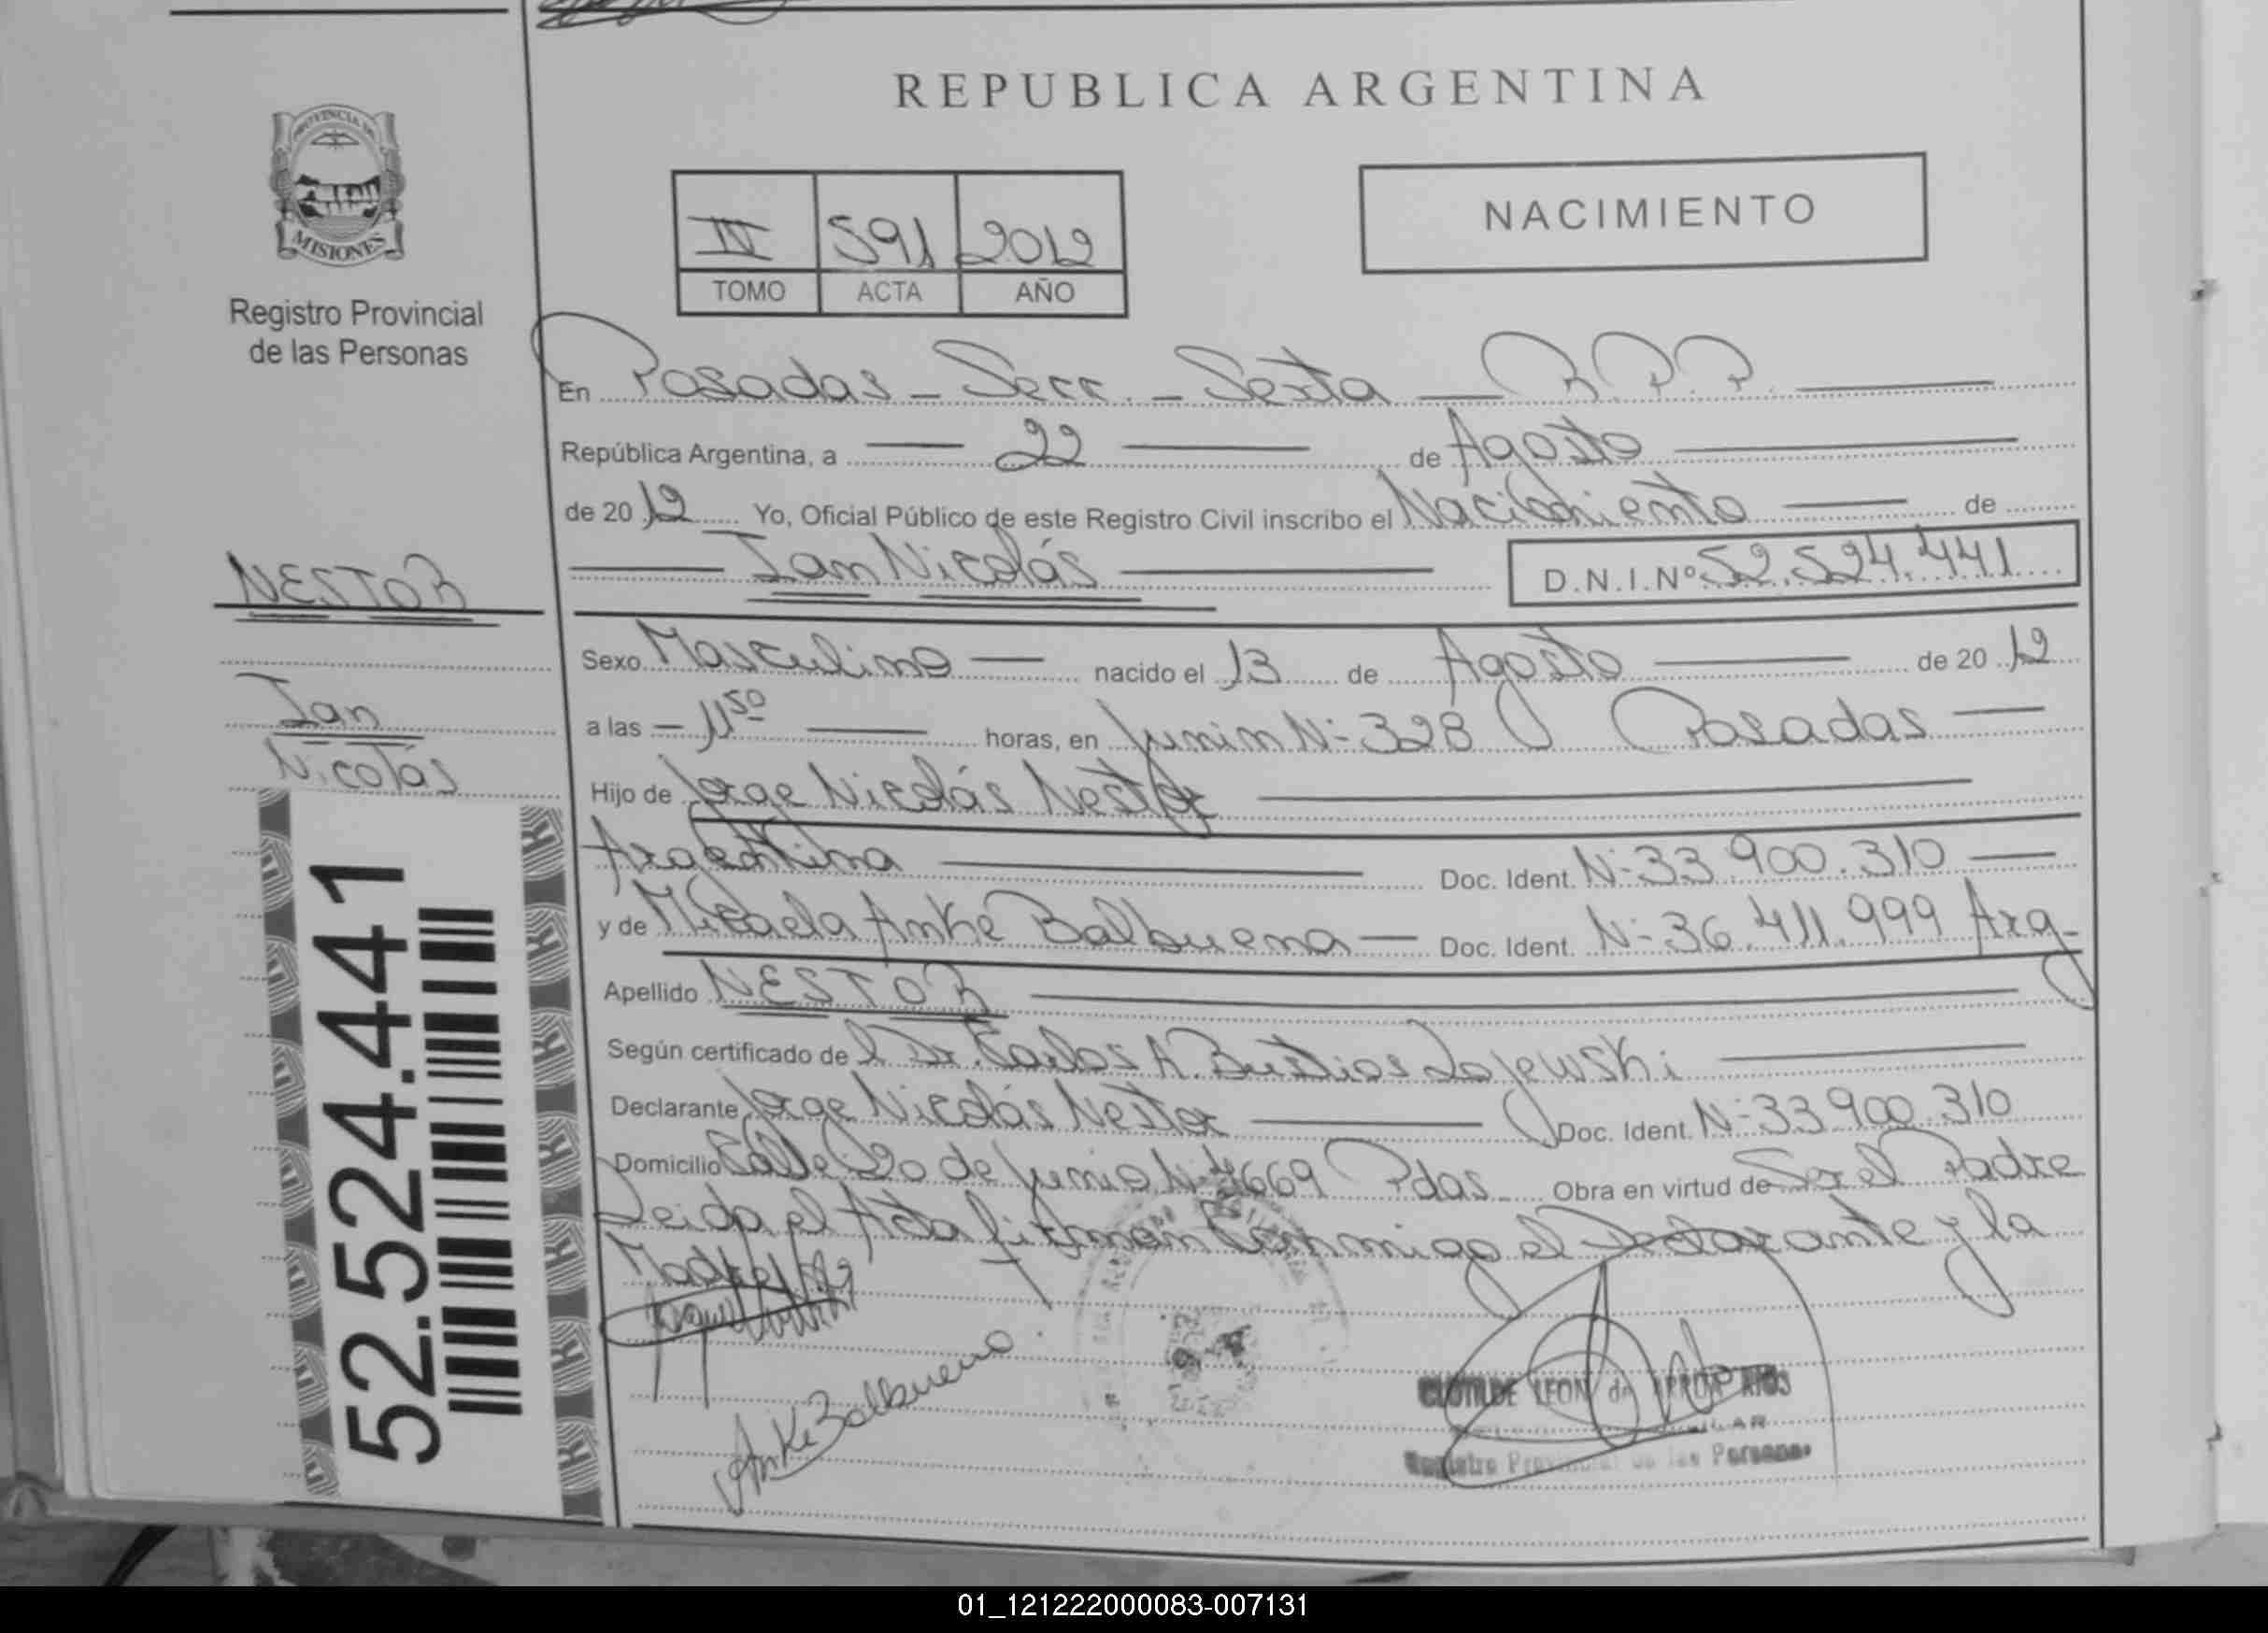 REPUBLICA ARGENTINA
PROVINCIA DE
MISIONES
Registro Provincial
de las Personas
NACIMIENTO
IV 591 2012
TOMO ACTA AÑO
En Posadas - Secc. - Sexta - R.P.P.
República Argentina, a 22 de Agosto
de 2012 Yo, Oficial Público de este Registro Civil inscribo el Nacimiento de
Ian Nicolás D.N.I.Nº 52.524.441
NESTOR
Ian
Nicolás
52.524.441
Sexo Masculino nacido el 13 de Agosto de 2012
a las 11⁵⁰ horas, en Junin N- 328 Posadas
Hijo de Jorge Nicolás Nestor
Argentina Doc. Ident. N- 33.900.310
y de Micaela Anké Balbuena Doc. Ident. N- 36.411.999 Arg
Apellido NESTOR
Según certificado del Dr. Carlos A. Bustios Lajewski
Declarante Jorge Nicolás Nestor Doc. Ident. N- 33.900.310
Domicilio Calle 20 de Junio N- 4669 Pdas. Obra en virtud de Ser el Padre
Leida el Acta firman Conmigo el Declarante y la
Madre
Anke Balbuena
CLOTILDE LEON de
Registro Provincial de las Personas
01_121222000083-007131